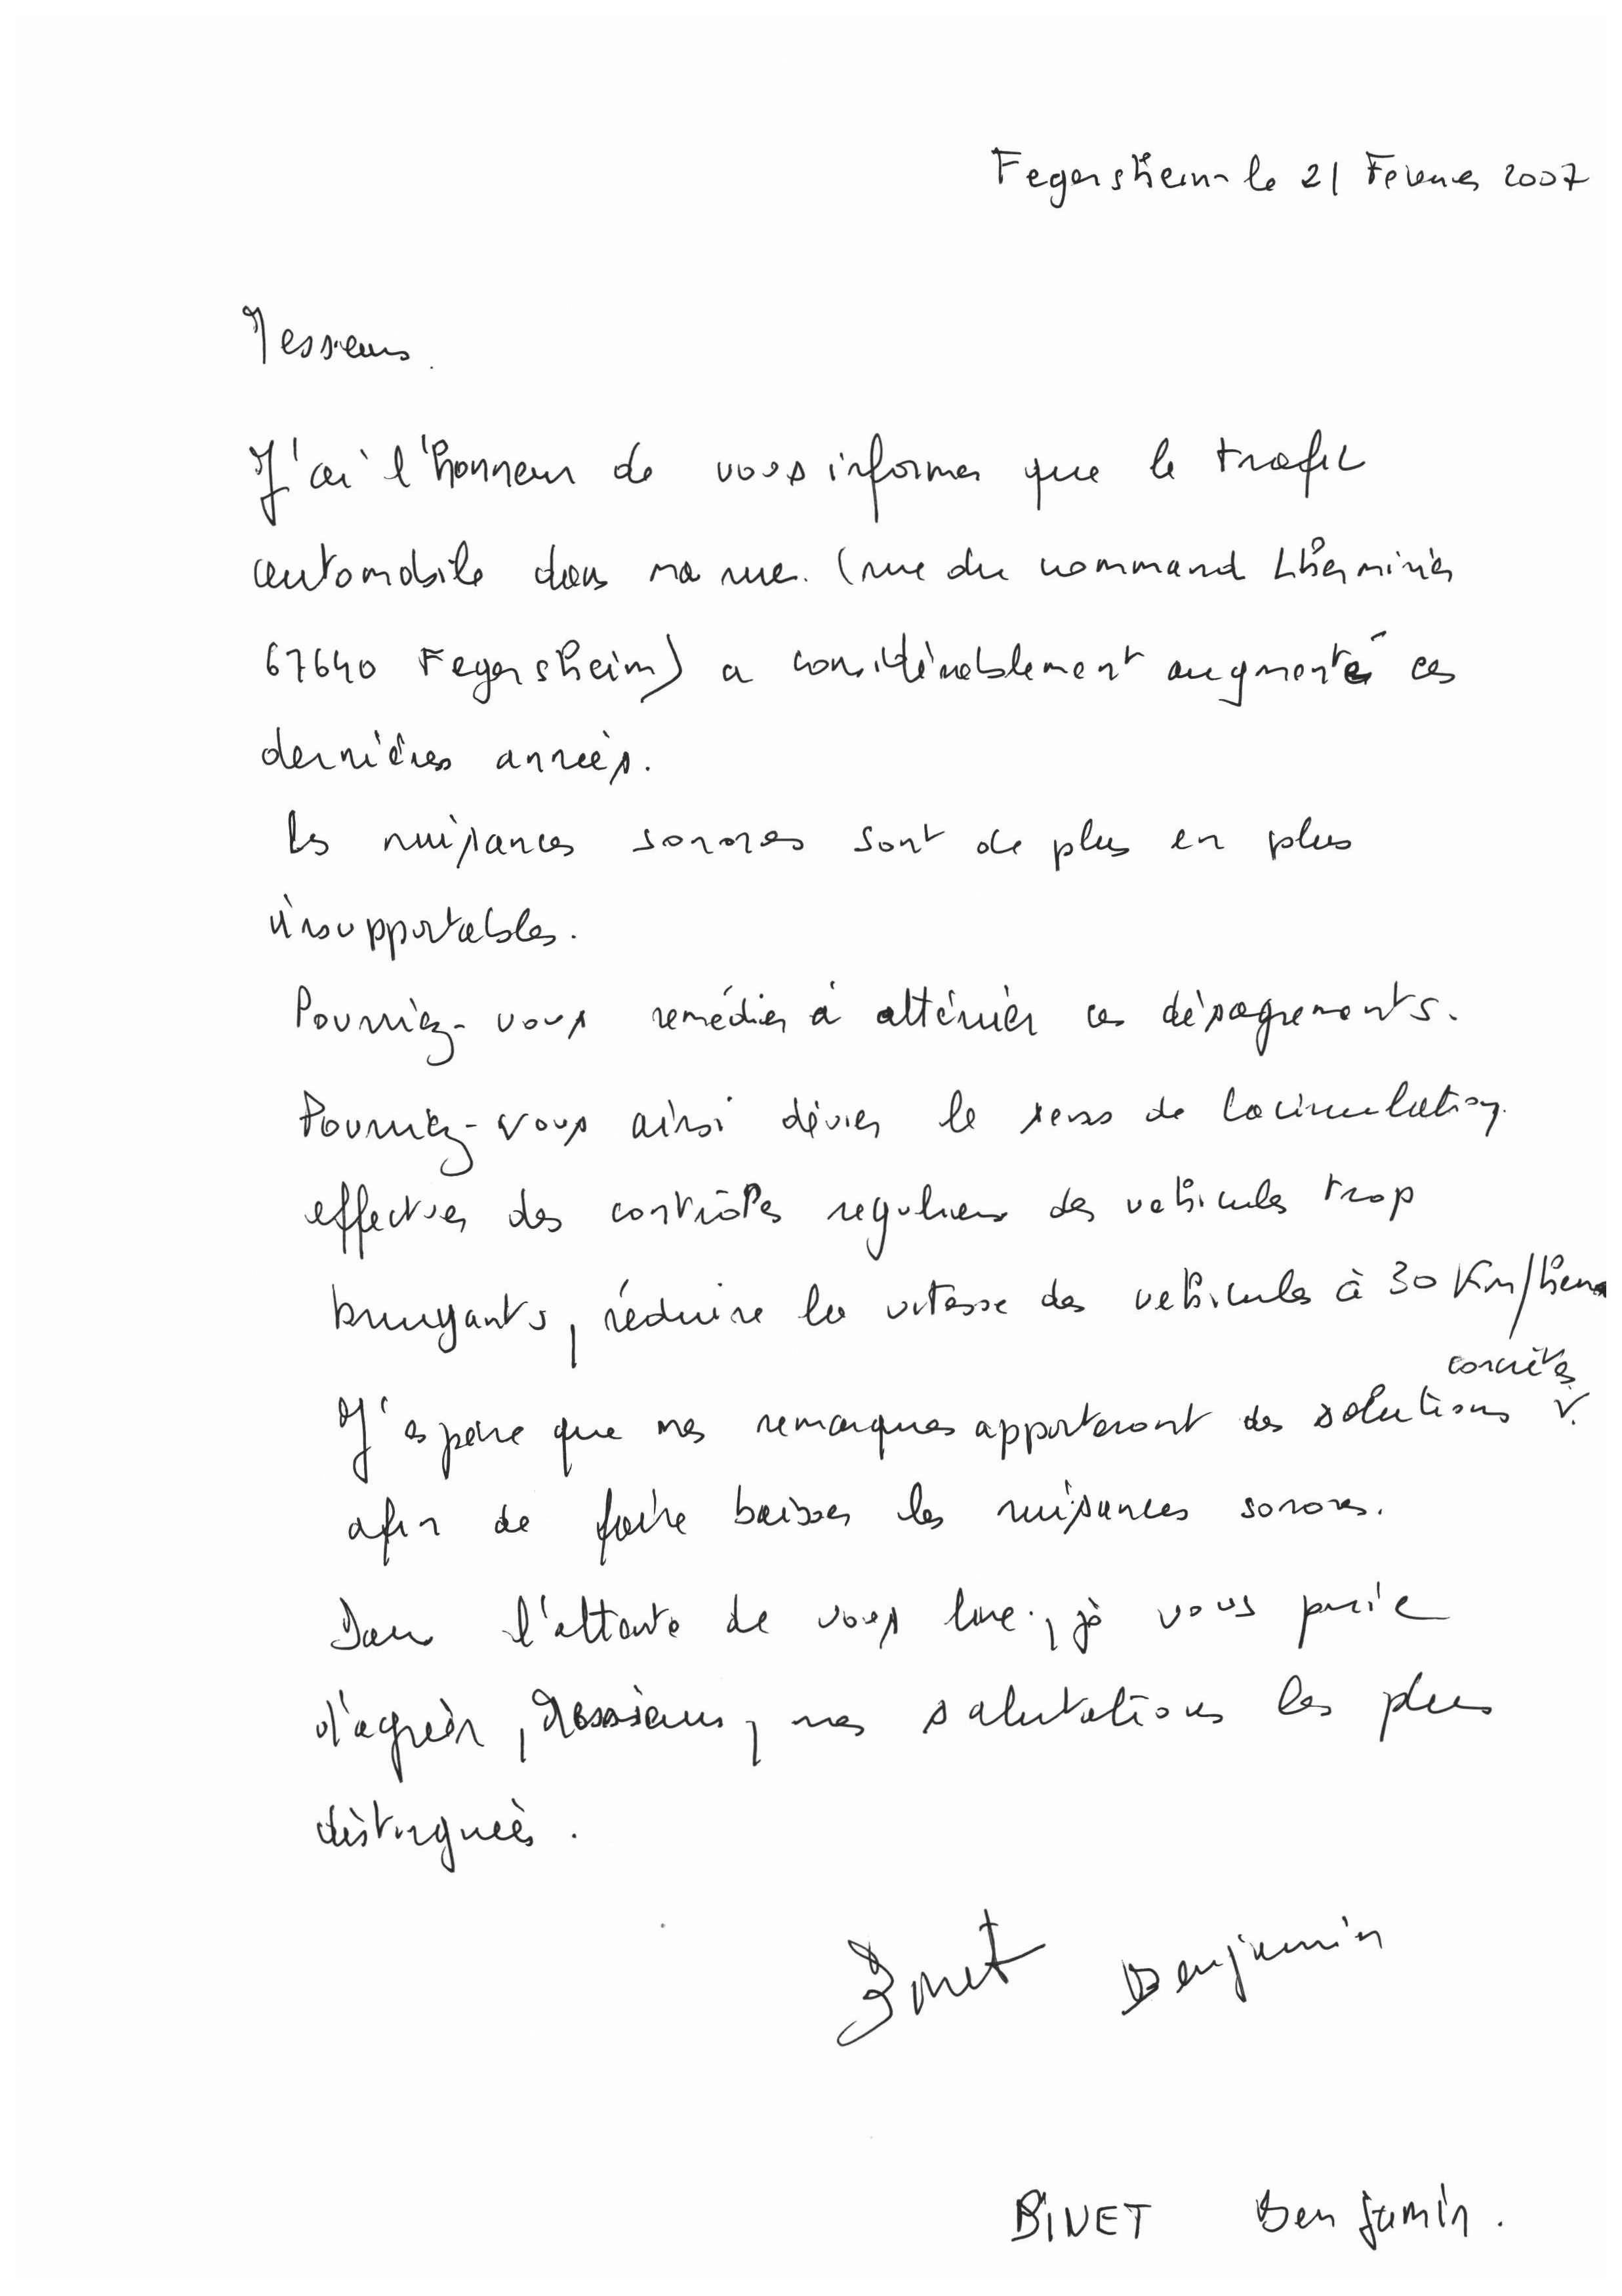 Fegersheim le 21 Fevrier 2007
Messieurs.
J'ai l'honneur de vous informer que le trafic
automobile dans ma rue. (rue du command Lherminier
67640 Fegersheim) a considérablement augmenté ces
dernières années.
les nuisances sonores sont de plus en plus
insupportables.
Pourriez-vous remédier à atténuer ces désagrements.
Pourriez-vous ainsi dévier le sens de la circulation
effectuer des contrôles reguliers des vehicules trop
bruyants, réduire la vitesse des vehicules à 30 Km/heure
J'espere que mes remarques apporteront des solutions concrètes.
afin de faire baisser les nuisances sonores.
Dans l'attente de vous lire, je vous prie
d'agréer, Messieurs, mes salutations les plus
distinguées.
Binet Benjamin
BINET Benjamin.